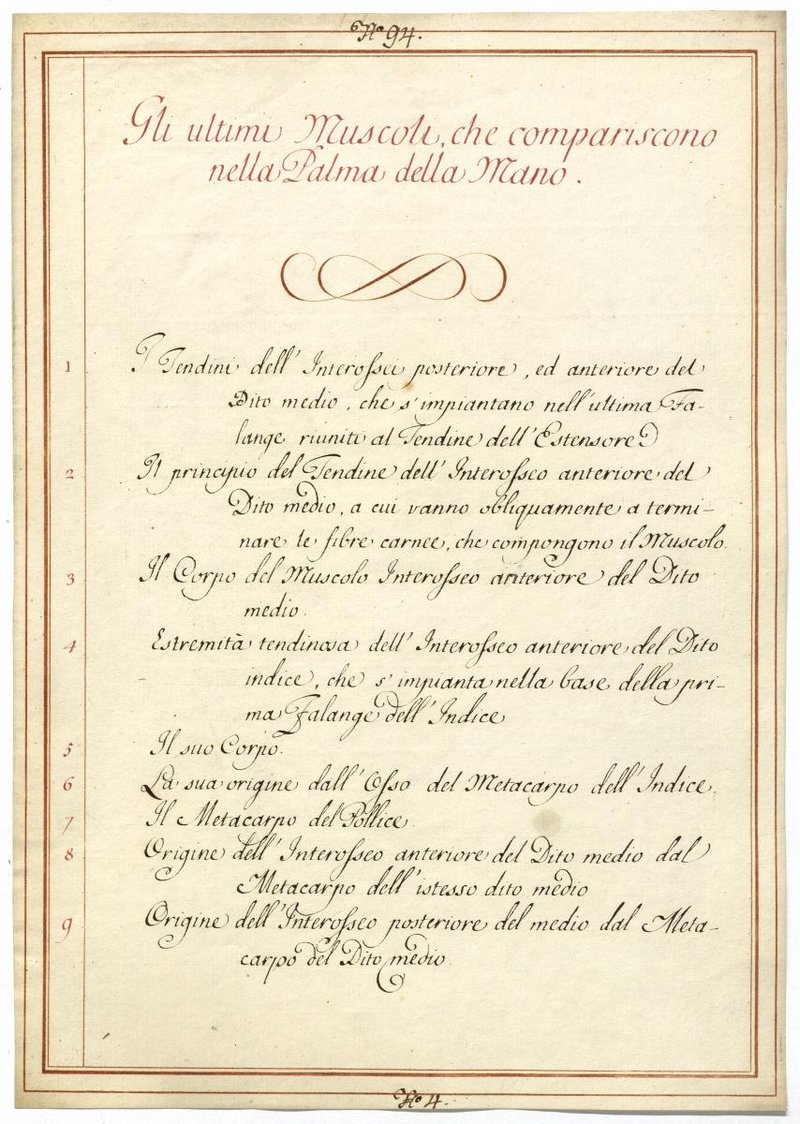 No. 94.
Gli ultimi Muscoli, che compariscono
nella Palma della Mano.
1 I Tendini dell' Interossei posteriore, ed anteriore del
Dito medio, che s'impiantano nell'ultima Fa-
lange riuniti al Tendine dell'Estensore
2 Il principio del Tendine dell'Interosseo anteriore del
Dito medio, a cui vanno obliquamente a termi-
nare le fibre carnee, che compongono il Muscolo.
3 Il Corpo del Muscolo Interosseo anteriore del Dito
medio.
4 Estremità tendinosa dell'Interosseo anteriore del Dito
indice, che s'impianta nella base della pri-
ma Falange dell'Indice
5 Il suo Corpo.
6 La sua origine dall'Osso del Metacarpo dell'Indice.
7 Il Metacarpo del Pollice.
8 Origine dell'Interosseo anteriore del Dito medio dal
Metacarpo dell'istesso dito medio
9 Origine dell'Interosseo posteriore del medio dal Meta-
carpo del Dito medio.
No. 4.